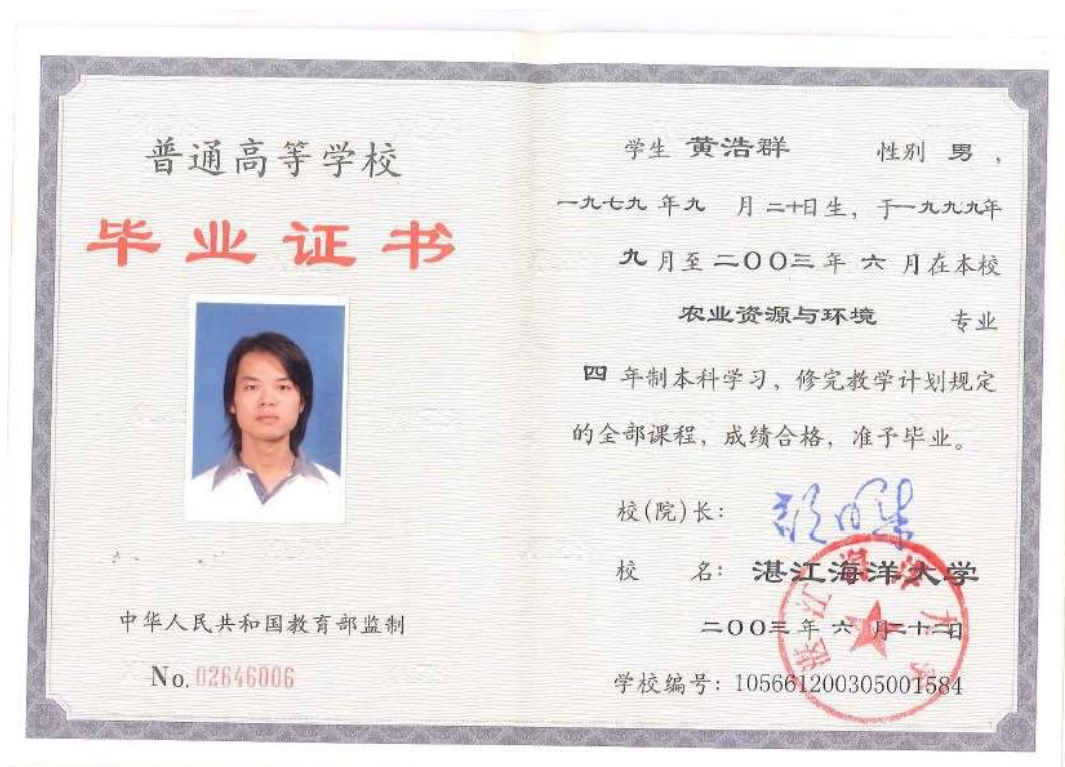 普通高等学校
毕业证书
中华人民共和国教育部监制
No. 02646006
学生 黄浩群 性别 男，
一九七九年九 月二十日生，于一九九九年
九月至二〇〇三年 六 月在本校
农业资源与环境 专业
四 年制本科学习，修完教学计划规定
的全部课程，成绩合格，准予毕业。
校(院)长：
校 名：湛江海洋大学
二〇〇三年 六 月二十二日
学校编号：105661200305001584
湛江海洋大学